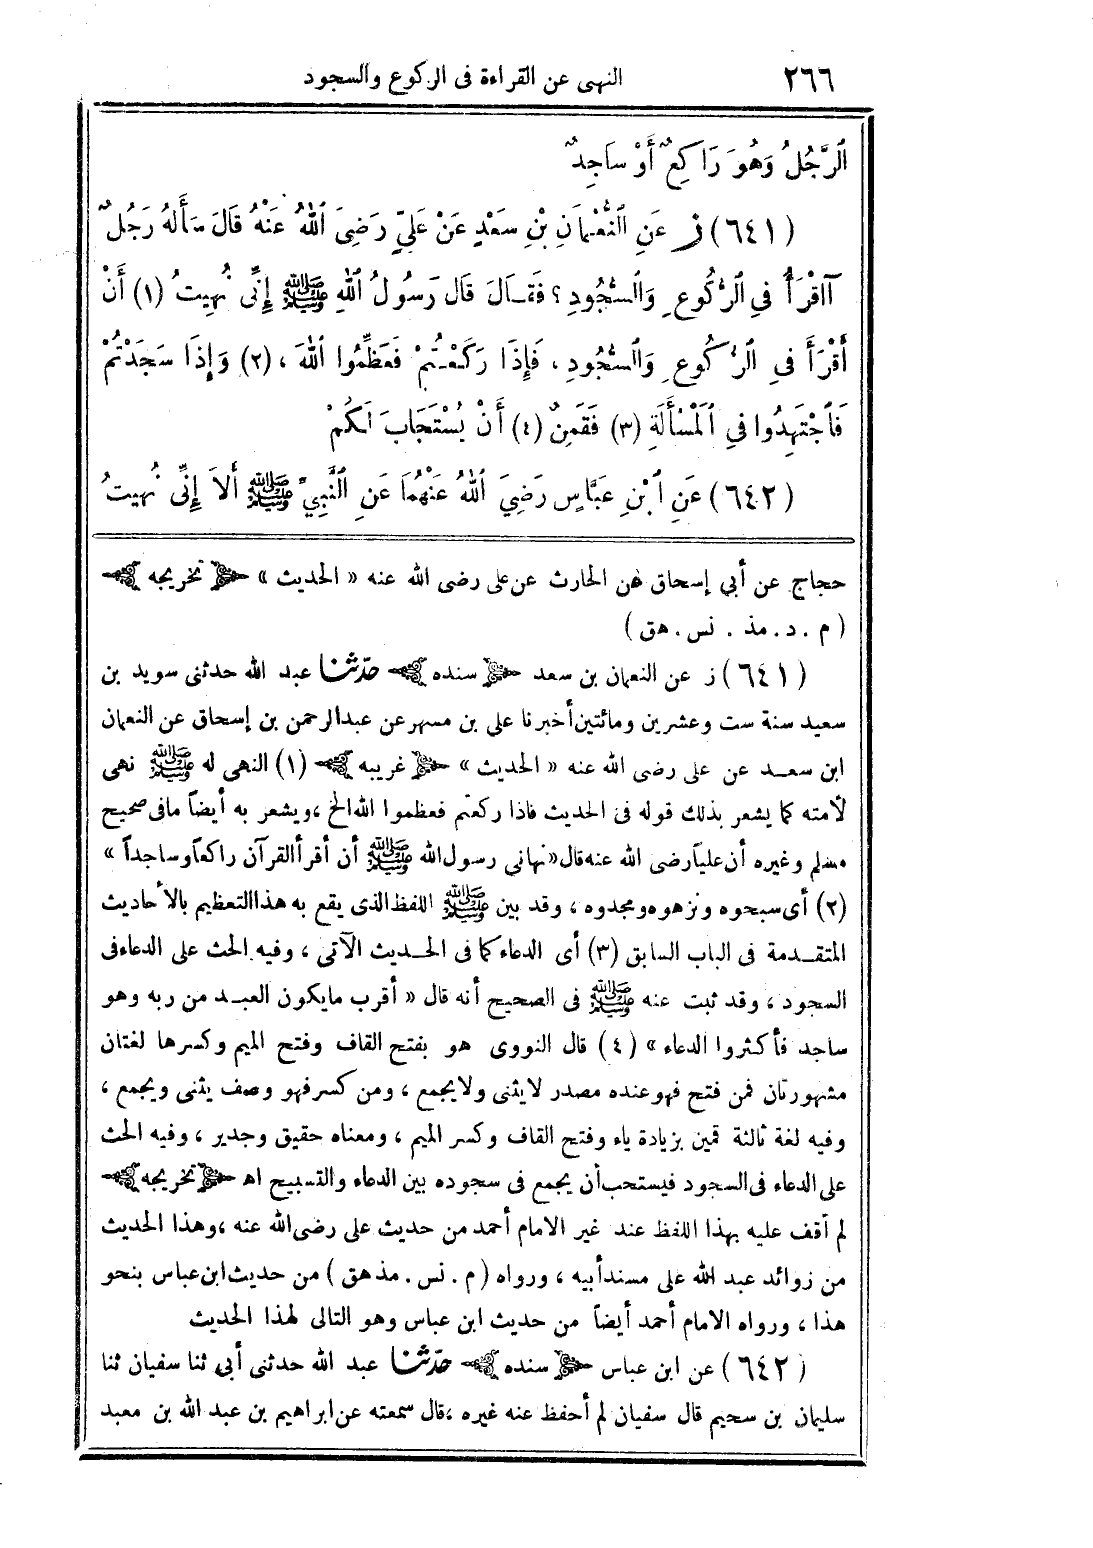 ٢٦٦ النهى عن القراءة فى الركوع والسجود
الرَّجُلُ وَهُوَ رَاكِعٌ أَوْ سَاجِدٌ
(٦٤١) ز عَنِ النُّعْمَانِ بْنِ سَعْدٍ عَنْ عَلِيٍّ رَضِيَ اللهُ عَنْهُ قَالَ سَأَلَهُ رَجُلٌ
آأَقْرَأُ فِي الرُّكُوعِ وَالسُّجُودِ؟ فَقَالَ قَالَ رَسُولُ اللهِ ﷺ إِنِّى نُهِيتُ (١) أَنْ
أَقْرَأَ فِي الرُّكُوعِ وَالسُّجُودِ، فَإِذَا رَكَعْتُمْ فَعَظِّمُوا اللهَ، (٢) وَإِذَا سَجَدْتُمْ
فَاجْتَهِدُوا فِي الْمَسْأَلَةِ (٣) فَقَمِنٌ (٤) أَنْ يُسْتَجَابَ لَكُمْ
(٦٤٢) عَنِ ابْنِ عَبَّاسٍ رَضِيَ اللهُ عَنْهُمَا عَنِ النَّبِيِّ ﷺ أَلَا إِنِّى نُهِيتُ
حجاج عن أبي إسحاق عن الحارث عن على رضى الله عنه « الحديث » تخريجه
(م . د . مذ . نس . هق)
(٦٤١) ز عن النعمان بن سعد سنده حدّثنا عبد الله حدثنى سويد بن
سعيد سنة ست وعشرين ومائتين أخبرنا على بن مسهر عن عبد الرحمن بن إسحاق عن النعمان
ابن سعد عن على رضى الله عنه « الحديث » غريبه (١) النهى له ﷺ نهى
لأمته كما يشعر بذلك قوله فى الحديث فاذا ركعتم فعظموا الله الخ، ويشعر به أيضاً مافى صحيح
مسلم وغيره أن علياً رضى الله عنه قال «نهانى رسول الله ﷺ أن أقرأ القرآن راكعاً وساجداً »
(٢) أى سبحوه ونزهوه ومجدوه، وقد بين ﷺ اللفظ الذى يقع به هذا التعظيم بالأحاديث
المتقدمة فى الباب السابق (٣) أى الدعاء كما فى الحديث الآتى، وفيه الحث على الدعاء فى
السجود، وقد ثبت عنه ﷺ فى الصحيح أنه قال « أقرب مايكون العبد من ربه وهو
ساجد فأكثروا الدعاء » (٤) قال النووى هو بفتح القاف وفتح الميم وكسرها لغتان
مشهورتان فمن فتح فهو عنده مصدر لايثنى ولايجمع، ومن كسر فهو وصف يثنى ويجمع،
وفيه لغة ثالثة قمين بزيادة ياء وفتح القاف وكسر الميم، ومعناه حقيق وجدير، وفيه الحث
على الدعاء فى السجود فيستحب أن يجمع فى سجوده بين الدعاء والتسبيح اه تخريجه
لم أقف عليه بهذا اللفظ عند غير الامام أحمد من حديث على رضى الله عنه، وهذا الحديث
من زوائد عبد الله على مسند أبيه، ورواه (م . نس . مذ هق) من حديث ابن عباس بنحو
هذا، ورواه الامام أحمد أيضاً من حديث ابن عباس وهو التالى لهذا الحديث
(٦٤٢) عن ابن عباس سنده حدّثنا عبد الله حدثنى أبى ثنا سفيان ثنا
سليمان بن سحيم قال سفيان لم أحفظ عنه غيره، قال سمعته عن ابراهيم بن عبد الله بن معبد